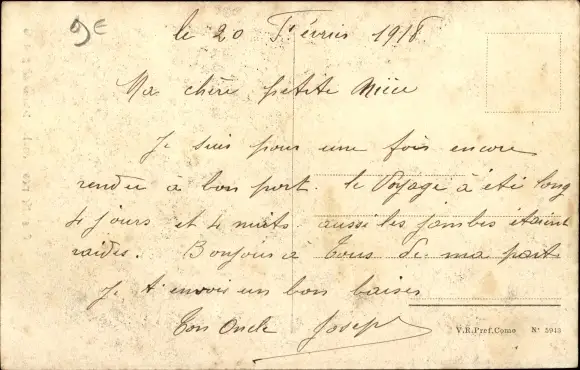 le 20 Février 1918
Ma chère petite Nièce
Je suis pour une fois encore
rendu à bon port. le Voyage à été long
4 jours et 4 nuits aussi les jambes étaient
raides. Bonjour à Tous de ma part
Je t'envoie un bon baiser
Ton Oncle Joseph
V.R.Pref.Como N° 5943